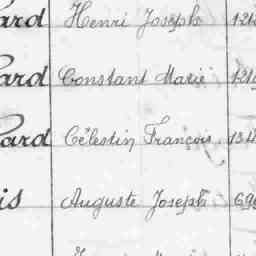 ard Henri Joseph 121
ard Constant Marie 121
ard Célestin François 134
is Auguste Joseph 696